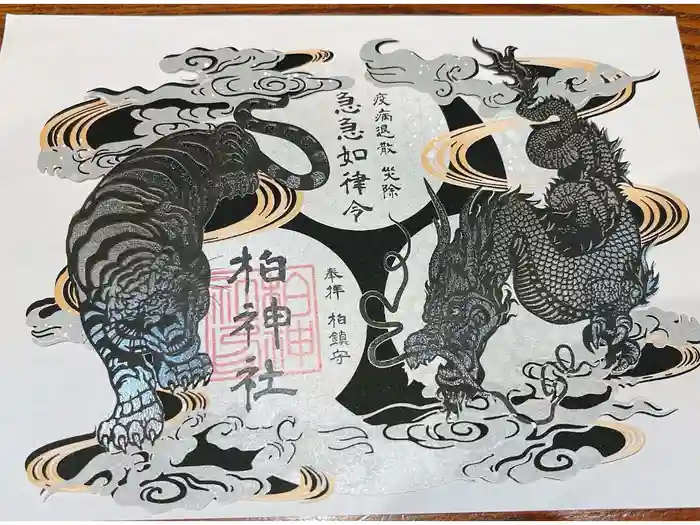 疫病退散 災除
急急如律令
奉拝 柏鎮守
柏神社